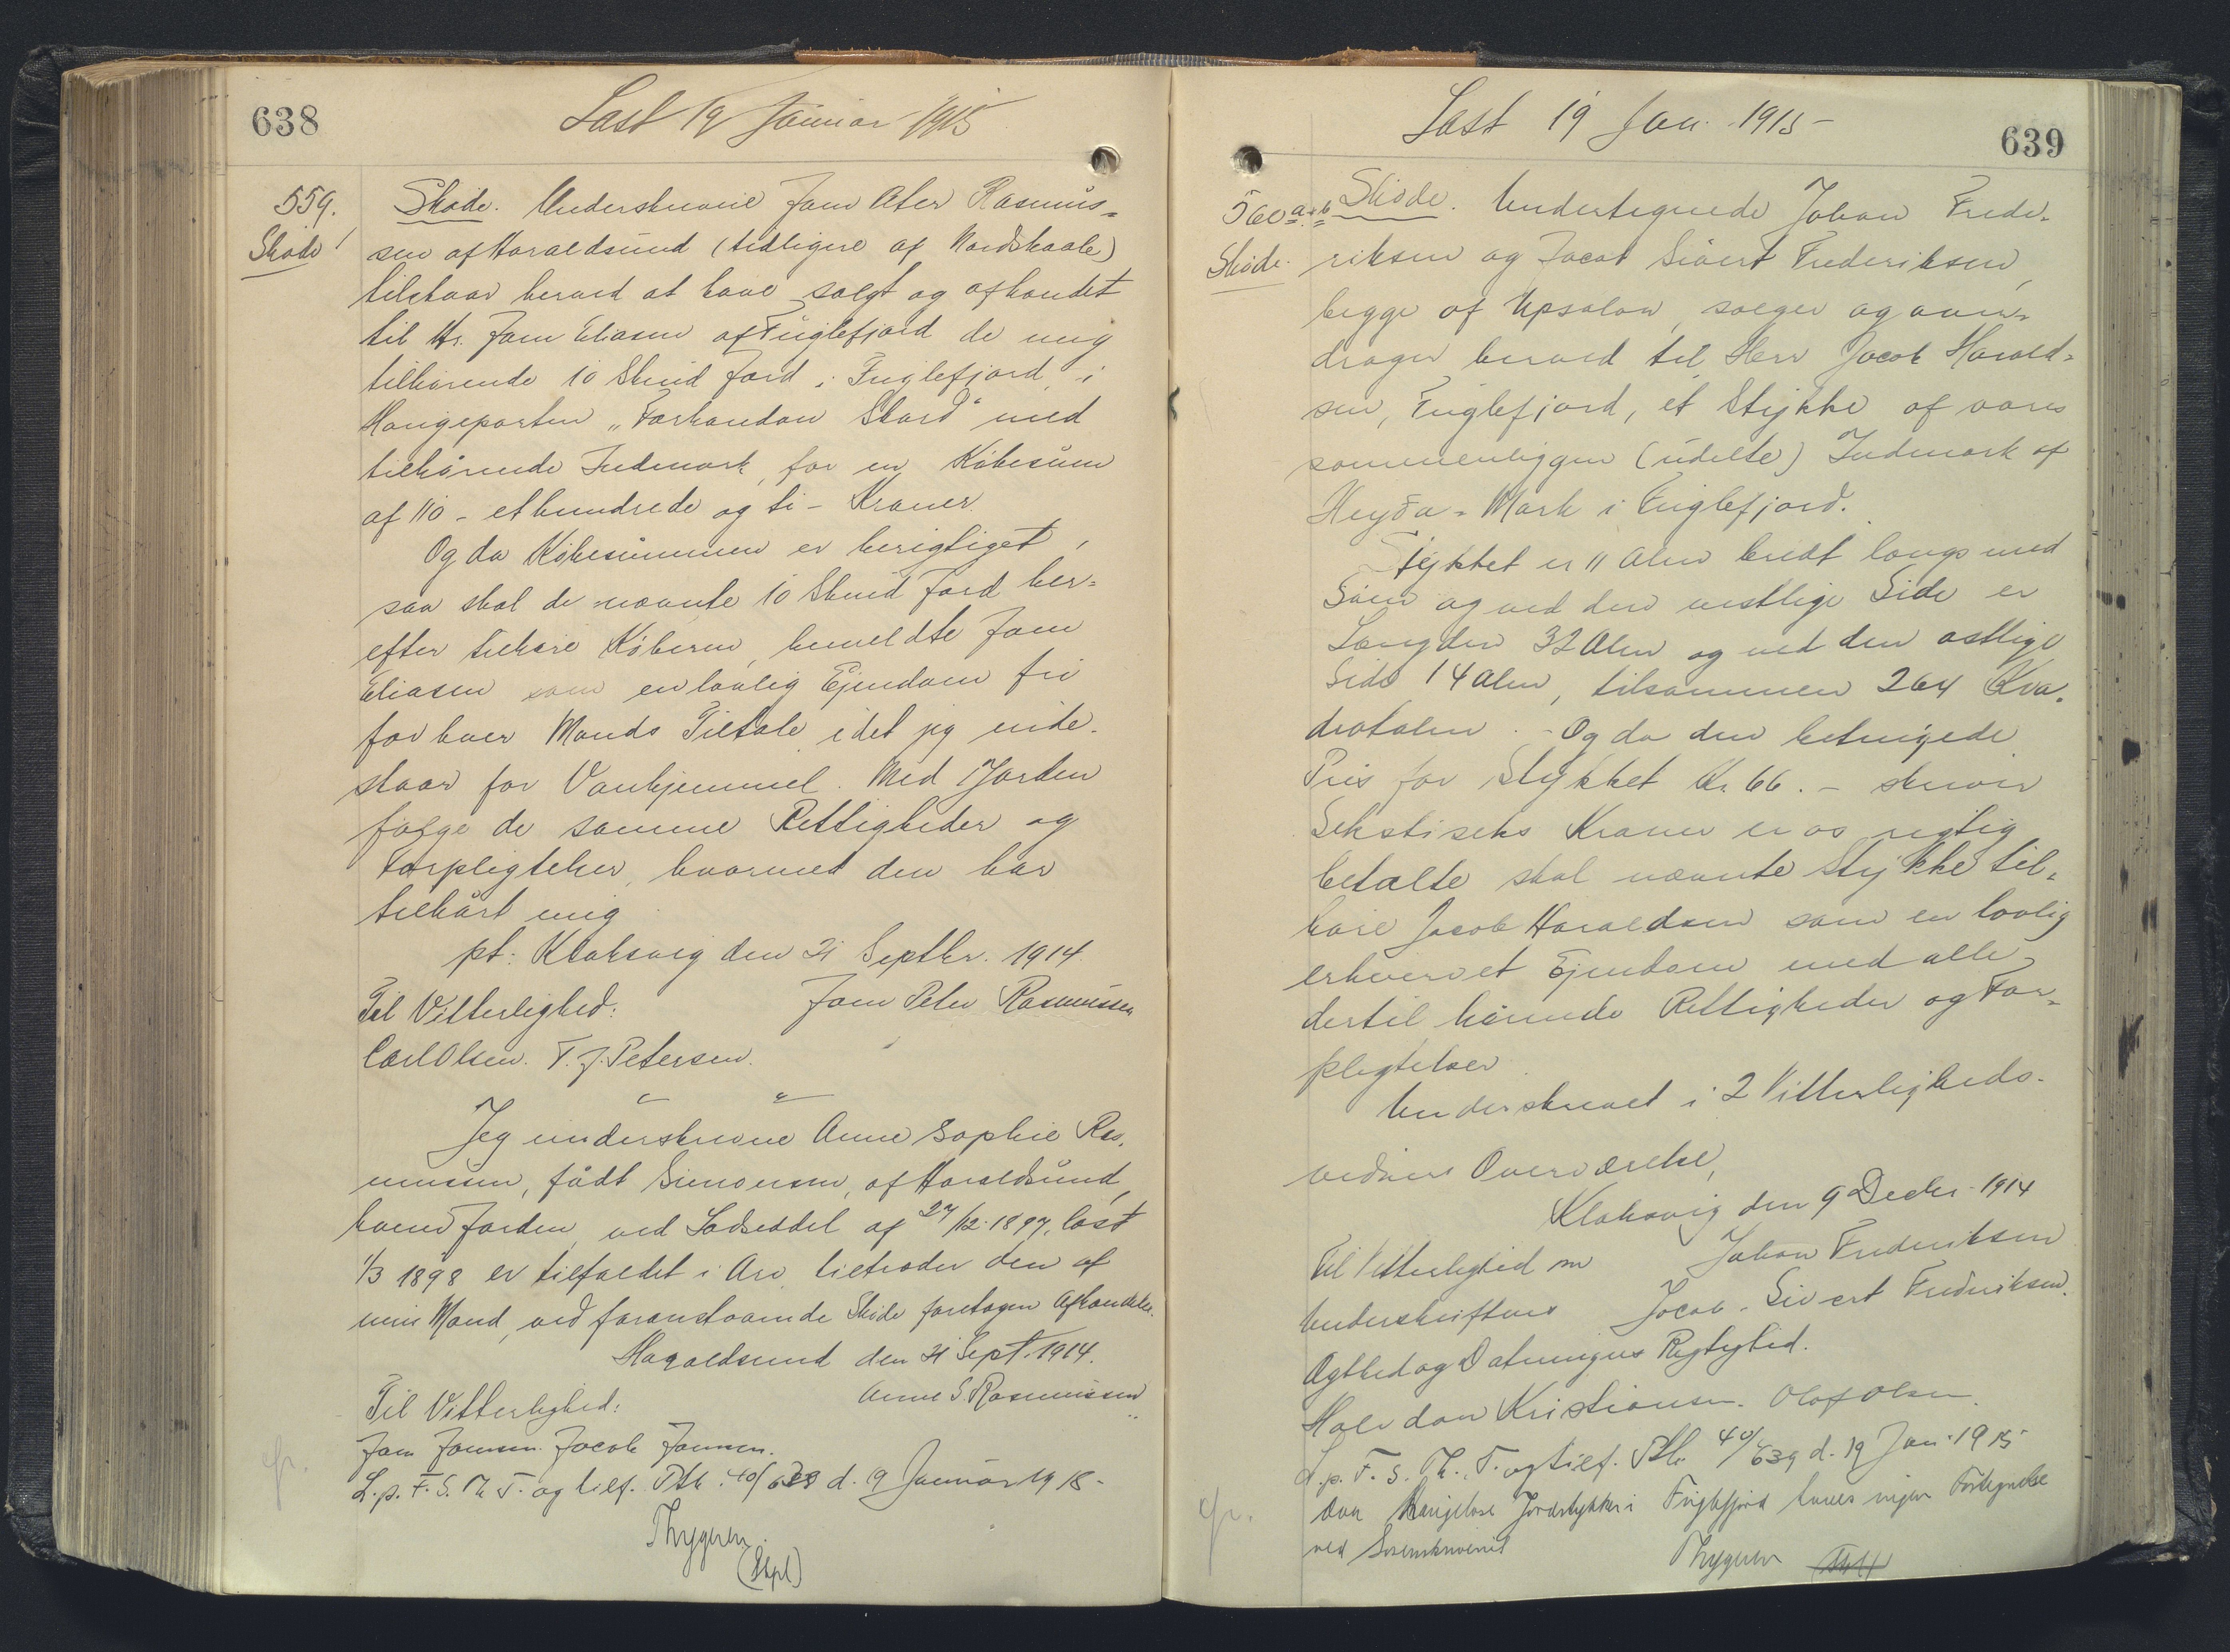 638
Læst 19 Januar 1915
559.
Skøde
Skøde. Underskrevne Joen Peter Rasmus-
sen af Haraldsund (tidligere af Nordskaale)
tilstaar herved at have solgt og afhændet
til Hr. Joen Eliasen af Fuglefjord de mig
tilhørende 10 Skind Jord i Fuglefjord, i
Haugeparten "Forhandan Skard" med
tilhørende Indmark, for en Købesum
af 110 - et hundrede og ti - Kroner.
Og da Købesummen er berigtiget,
saa skal de nævnte 10 Skind Jord her-
efter tilhøre Køberen, bemeldte Joen
Eliasen som en lovlig Ejendom fri
for hver Mands Tiltale, idet jeg inde-
staar for Vanhjemmel. Med Jorden
følge de samme Rettigheder og
Forpligtelser, hvormed den har
tilhørt mig.
pt. Klaksvig den 21 Septbr. 1914.
Til Vitterlighed:
Joen Peter Rasmussen
Carl Olsen. F. J. Petersen.
Jeg underskrevne Anne Sophie Ras-
mussen, født Simonsen, af Haraldsund,
hvem Jorden ved Lodseddel af 27/12 1897, læst
1/3 1898 er tilfaldet i Arv, tiltræder den af
min Mand, ved foranstaaende Skøde foretagen Afhændelse.
Haraldsund den 21 Sept. 1914.
Til Vitterlighed:
Anne S. Rasmussen
Joen Joensen. Jacob Joensen.
L. p. F. S. Th. T. og tilf. Ptk. 40/638 d. 19 Januar 1915.
Thygesen.
(Stpl)
cfr.
Læst 19 Jan. 1915 -
639
560 a+b
Skøde.
Skøde. Undertegnede Johan Frede-
riksen og Jacob Sivert Frederiksen,
begge af Upsalon, sælger og over-
drager herved til Herr Jacob Harald-
sen, Fuglefjord, et Stykke af vores
sammenliggen (udelte) Indmark af
Heyða-Mark i Fuglefjord.
Stykket er 11 Alen bredt langs med
Søen og ved den vestlige Side er
Længden 32 Alen og ved den østlige
Side 14 Alen, tilsammen 264 Kva-
dratalen. - Og da den betingede
Pris for Stykket Kr. 66. - skriver
Sekstiseks Kroner er os rigtig
betalte skal nævnte Stykke til-
høre Jacob Haraldsen som en lovlig
erhvervet Ejendom med alle
dertil hørende Rettigheder og For-
pligtelser.
Underskrevet i 2 Vitterligheds-
vidners Overværelse,
Klaksvig den 9 Decbr. 1914
Til Vitterlighed om
Johan Frederiksen
Underskriftens
Jacob Sivert Frederiksen.
Ægthed og Dateringens Rigtighed.
Halvdan Kristiansen. Olaf Olsen
L. p. F. S. Th. T. og tilf. Ptk. 40/639 d. 19 Jan. 1915
Over Haugeløse Jordstykker i Fuglefjord haves ingen Fortegnelse
ved Sorenskriveriet
Thygesen
cfr.